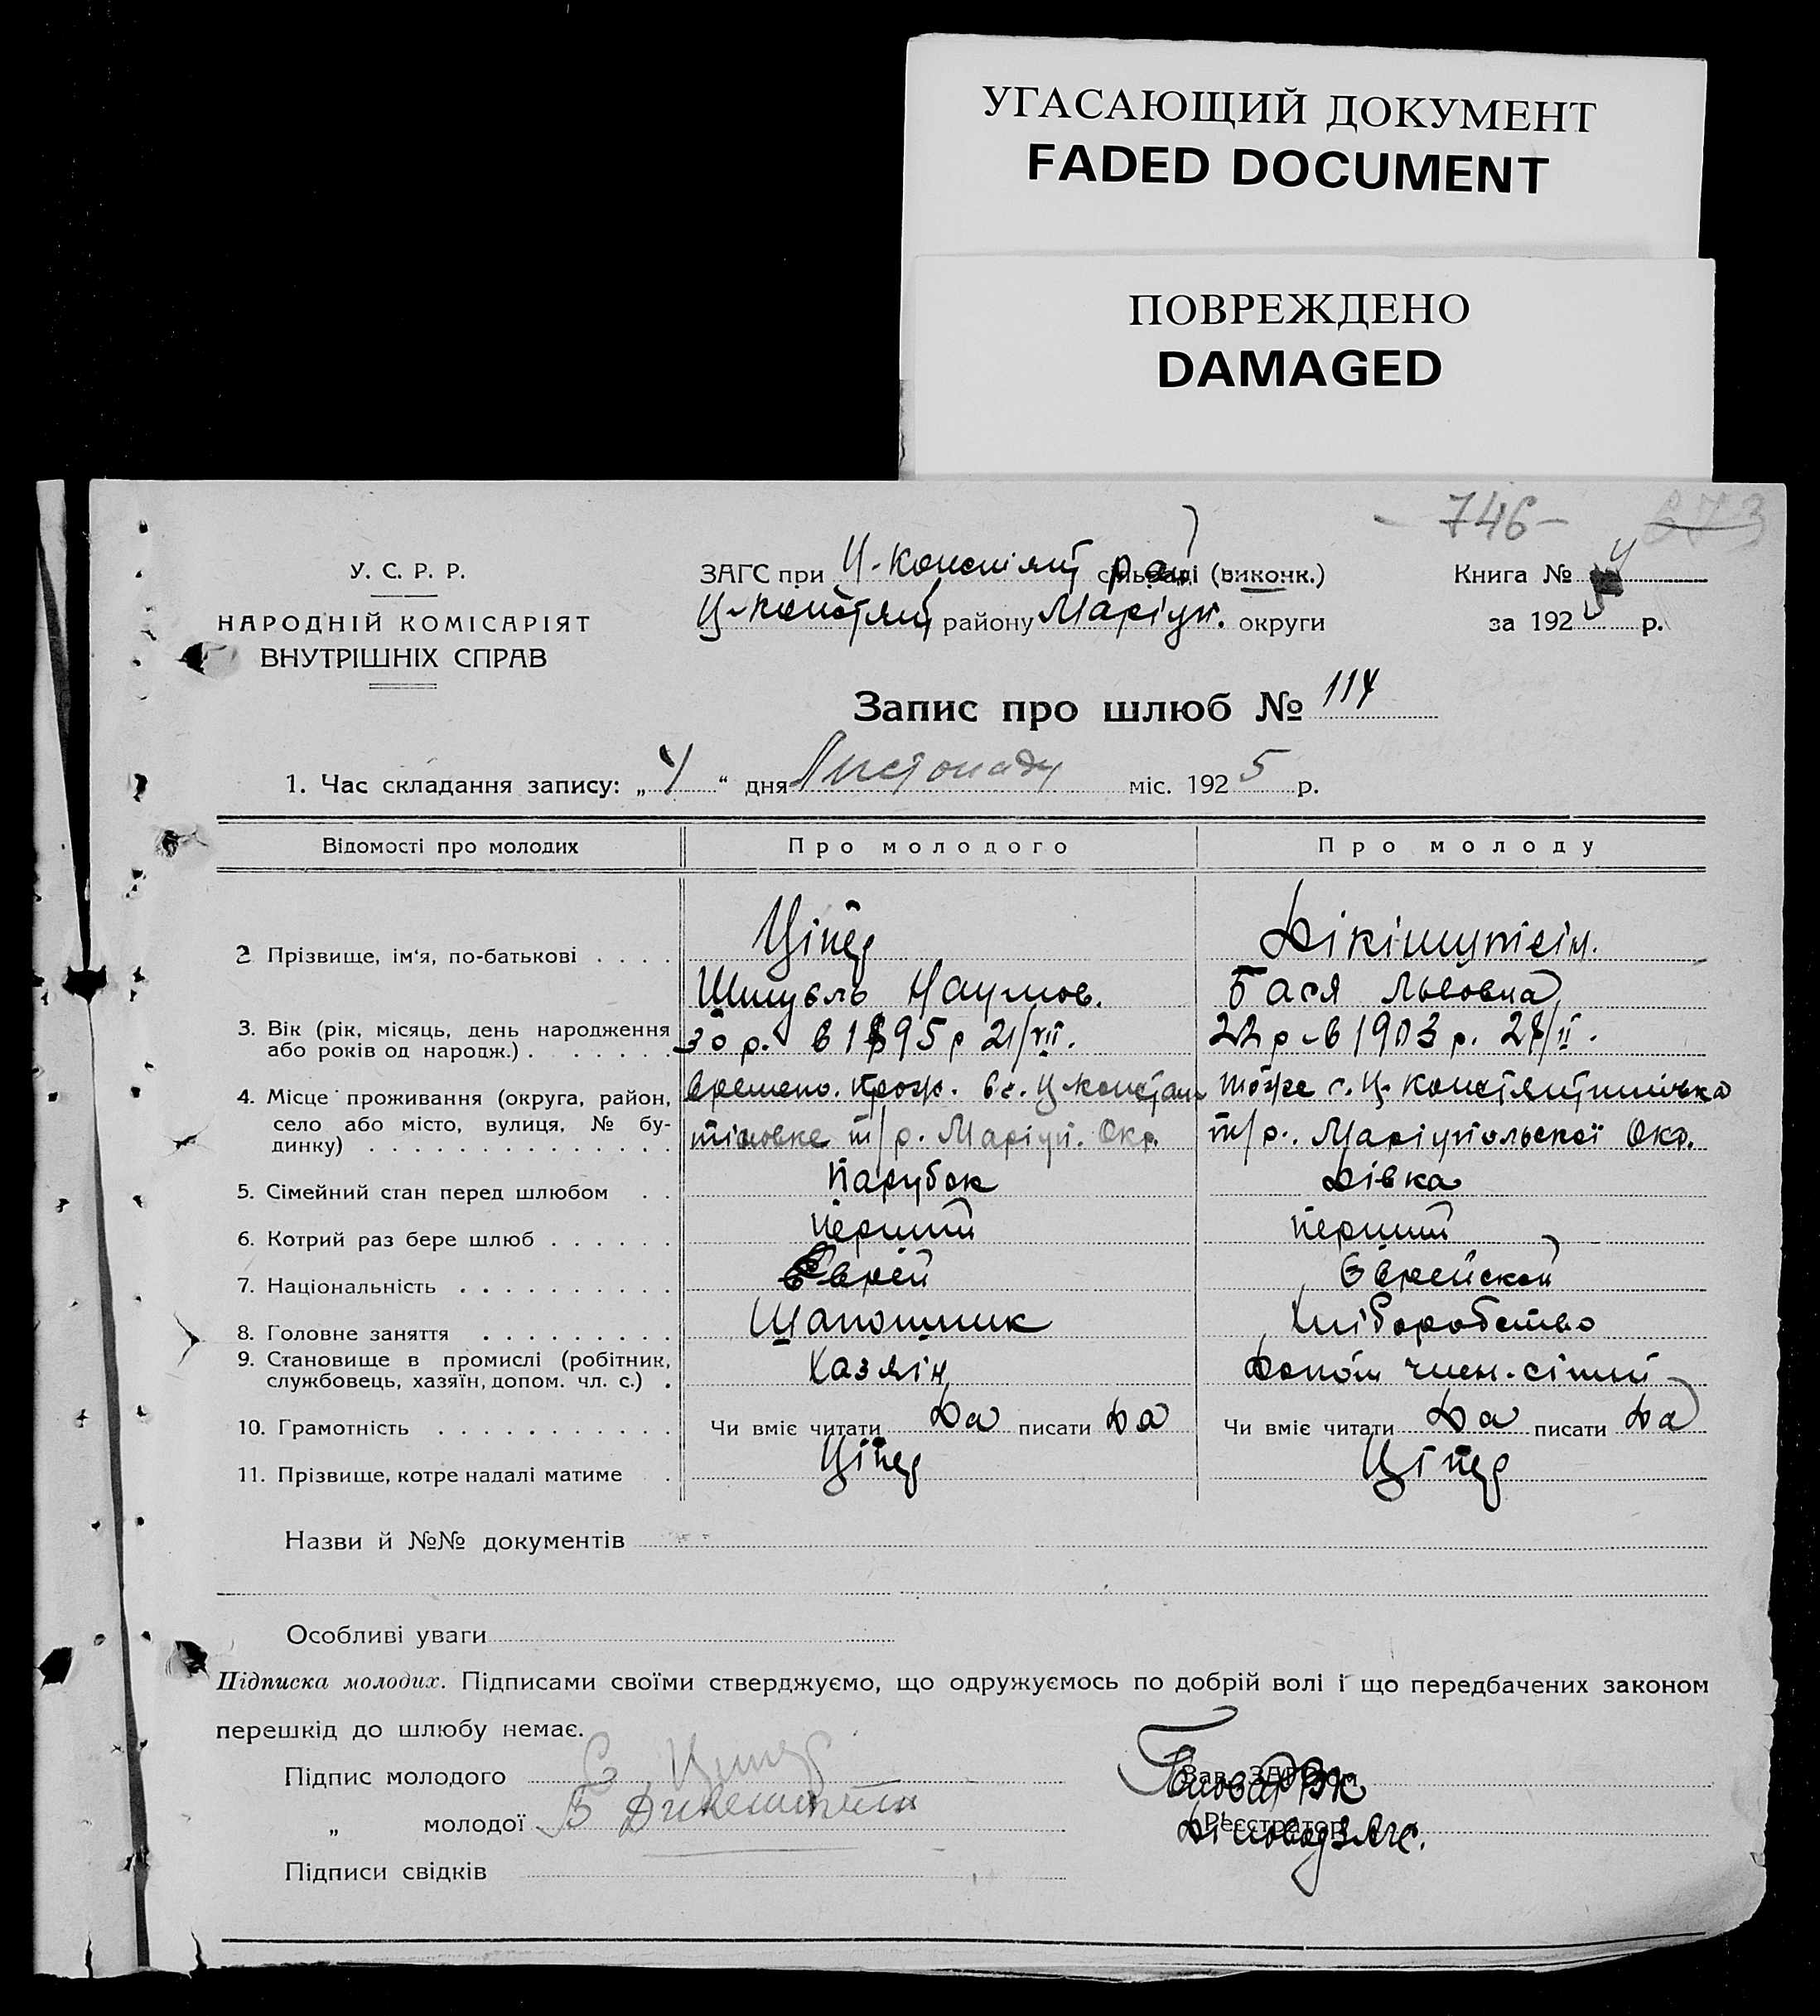 УГАСАЮЩИЙ ДОКУМЕНТ
FADED DOCUMENT
ПОВРЕЖДЕНО
DAMAGED
- 746 - 273
У. С. Р. Р.
НАРОДНІЙ КОМІСАРІЯТ
ВНУТРІШНІХ СПРАВ
ЗАГС при Ц-Констянт рай сільраді (виконк.)
Ц-Констянт району Маріуп. округи
Книга № 4
за 1925 р.
Запис про шлюб № 114
1. Час складання запису: „ 4 “ дня Листопаду міс. 1925 р.
Відомості про молодих Про молодого Про молоду
2 Прізвище, ім'я, по-батькові . . . . Ціпер Дікштейн.
Шмуель Наумов. Бася Львовна
3. Вік (рік, місяць, день народження 30 р. в 1895 р 21/VII. 22 р в 1903 р. 28/II.
або років од народж.) . . . . . . .
4. Місце проживання (округа, район, времено. прож. в с. Ц-констан тоже с. Ц-констянтинівка
село або місто, вулиця, № бу- тіновке т/р. Маріуп. Окр. т/р. Маріупольскої Окр.
динку) . . . . . . . . . . . . . .
5. Сімейний стан перед шлюбом . . Парубок Дівка
6. Котрий раз бере шлюб . . . . . . перший перший
7. Національність . . . . . . . . . . Еврей Еврейской
8. Головне заняття . . . . . . . . . Шапошник Хліборобство
9. Становище в промислі (робітник, Хазяін Допом член. сімьи
службовець, хазяїн, допом. чл. с.) .
10. Грамотність . . . . . . . . . . . Чи вміє читати Да писати Да Чи вміє читати Да писати Да
11. Прізвище, котре надалі матиме . Ціпер Ціпер
Назви й №№ документів
Особливі уваги
Підписка молодих. Підписами своїми стверджуємо, що одружуємось по добрій волі і що передбачених законом
перешкід до шлюбу немає.
Підпис молодого С Ципер
Зав. ЗАГС'ом
„ молодої Б Дикештейн
Реєстратор
Діловод ЗАГС.
Підписи свідків